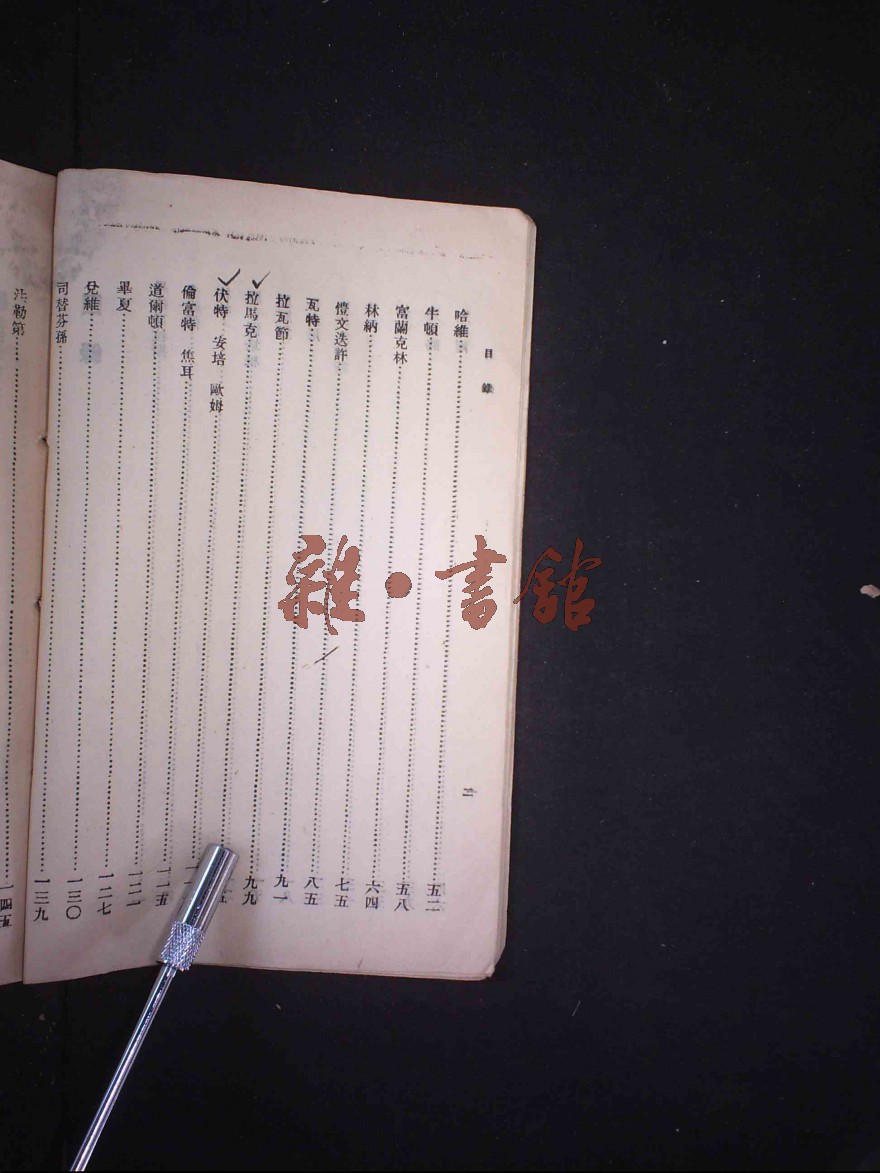 目錄 二
哈維……五二
牛頓……五八
富蘭克林……六四
林納……七五
愷文迭許……八五
瓦特……九一
拉瓦節……九九
拉馬克……
伏特 安培 歐姆……
倫富特 焦耳……一一五
道爾頓……一二一
畢夏……一二七
兌維……一三〇
司替芬孫……一三九
法勒第……一四五
雜·書館